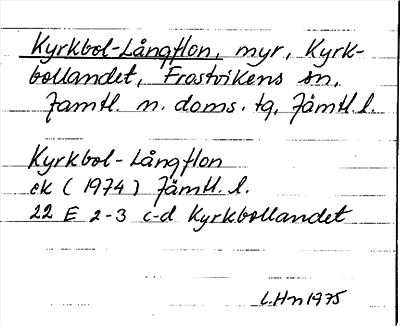 Kyrkbol-Långflon, myr, Kyrk-
bollandet, Frostvikens sn,
Jämtl. n. doms. tg, Jämtl l.
Kyrkbol-Långflon
ek (1974) Jämtl. l.
22 E 2-3 c-d Kyrkbollandet
L.Hn 1975